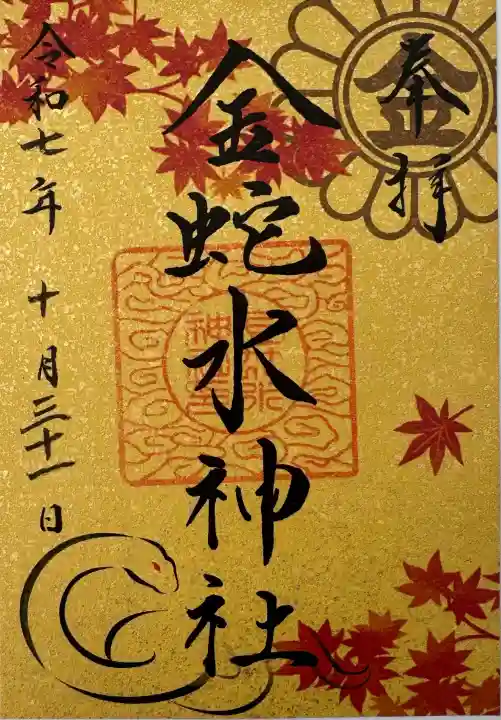 奉拝
金
金蛇水神社
令和七年 十月三十一日